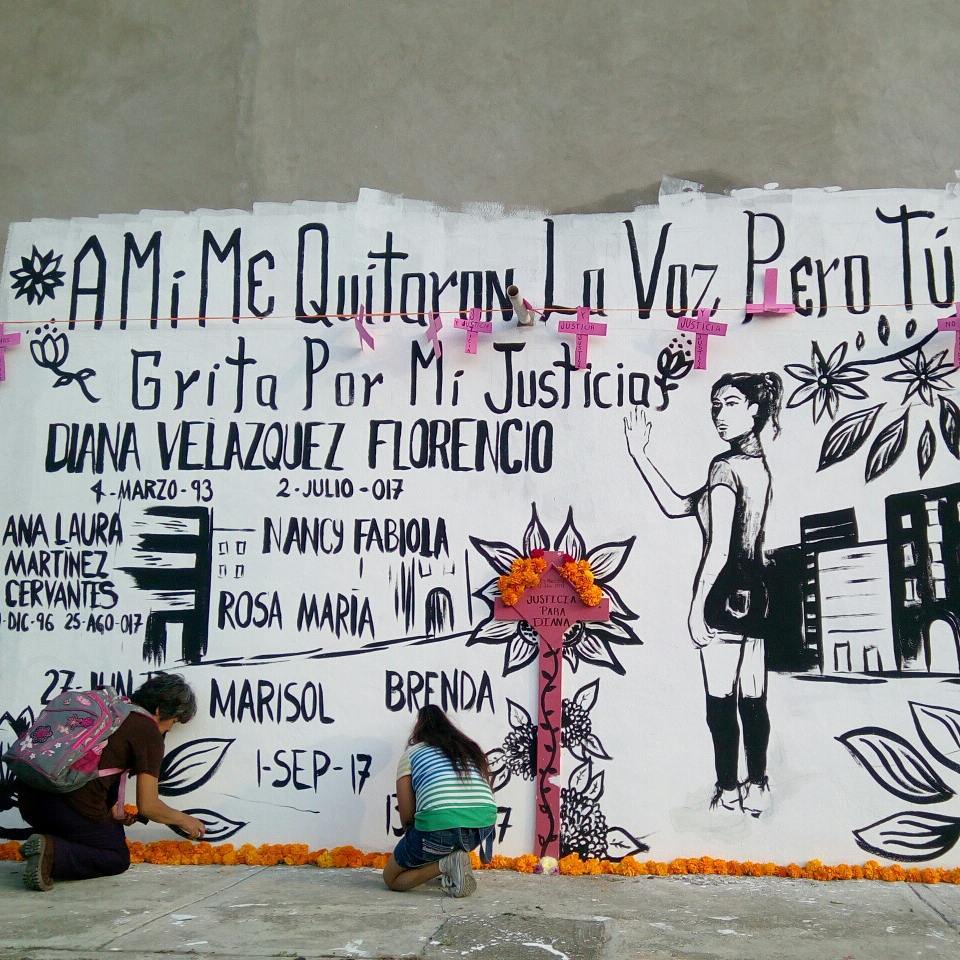 A Mi Me Quitaron La Voz Pero Tú
Grita Por Mi Justicia
DIANA VELAZQUEZ FLORENCIO
4-MARZO-93 2-JULIO-017
ANA LAURA
MARTÍNEZ
CERVANTES
-DIC-96 25-AGO-017
NANCY FABIOLA
ROSA MARÍA
27-JUN
MARISOL
BRENDA
1-SEP-17
Y JUSTICIA
Y JUSTICIA
JUSTICIA
JUSTICIA
PARA
DIANA